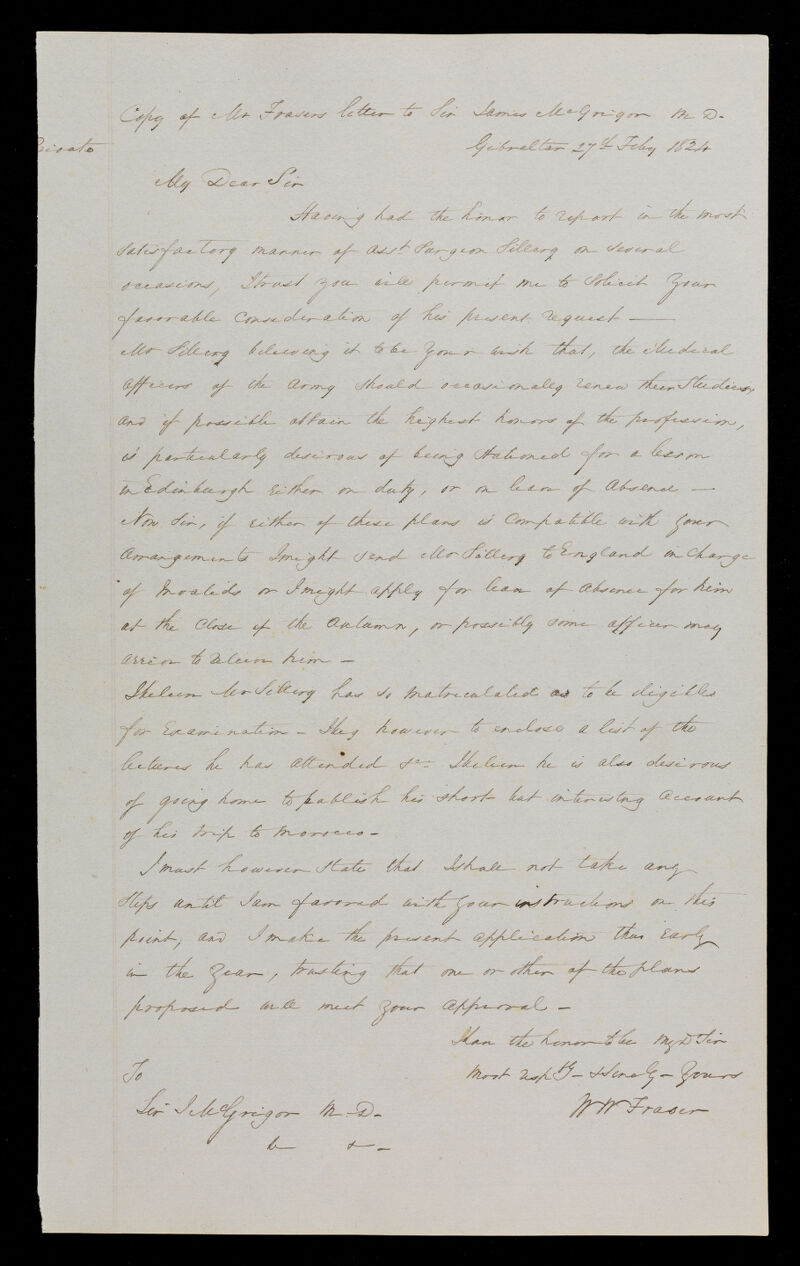 Copy of Mr Frasers letter to Sir James McGrigor M D-
Private
Gibraltar 27th Feby 1824
My Dear Sir
Having had the honor to report in the most
satisfactory manner of asst Surgeon Sillery on several
occasions, I trust you will permit me to Solicit your
favorable Consideration of his present request —
Mr Sillery believing it to be your wish that, the Medical
officers of the Army should occasionally renew their Studies,
and if possible obtain the highest honors of the profession,
is particularly desirous of being Stationed for a season
in Edinburgh Either on duty, or on leave of Absence —
Now Sir, if either of these plans is Compatible with your
Arrangements I might send Mr Sillery to England in Charge
of Invalids or I might apply for leave of Absence for him
at the Close of the Autumn, or possibly some officer may
arrive to relieve him —
I believe Mr Sillery has so matriculated as to be eligible
for Examination - I beg however to enclose a list of the
lectures he has attended &c- I believe he is also desirous
of going home to publish his short but interesting Account
of his trip to Morocco-
I must however State that I shall not take any
Steps until I am favored with your instructions on this
point, and I make the present application thus Early
in the Year, trusting that one or other of the plans
proposed will meet your Approval -
I have the honor to be My D Sir
Most resply- & Sincly- Yours
W W Fraser
To
Sir J McGrigor M-D-
& &-